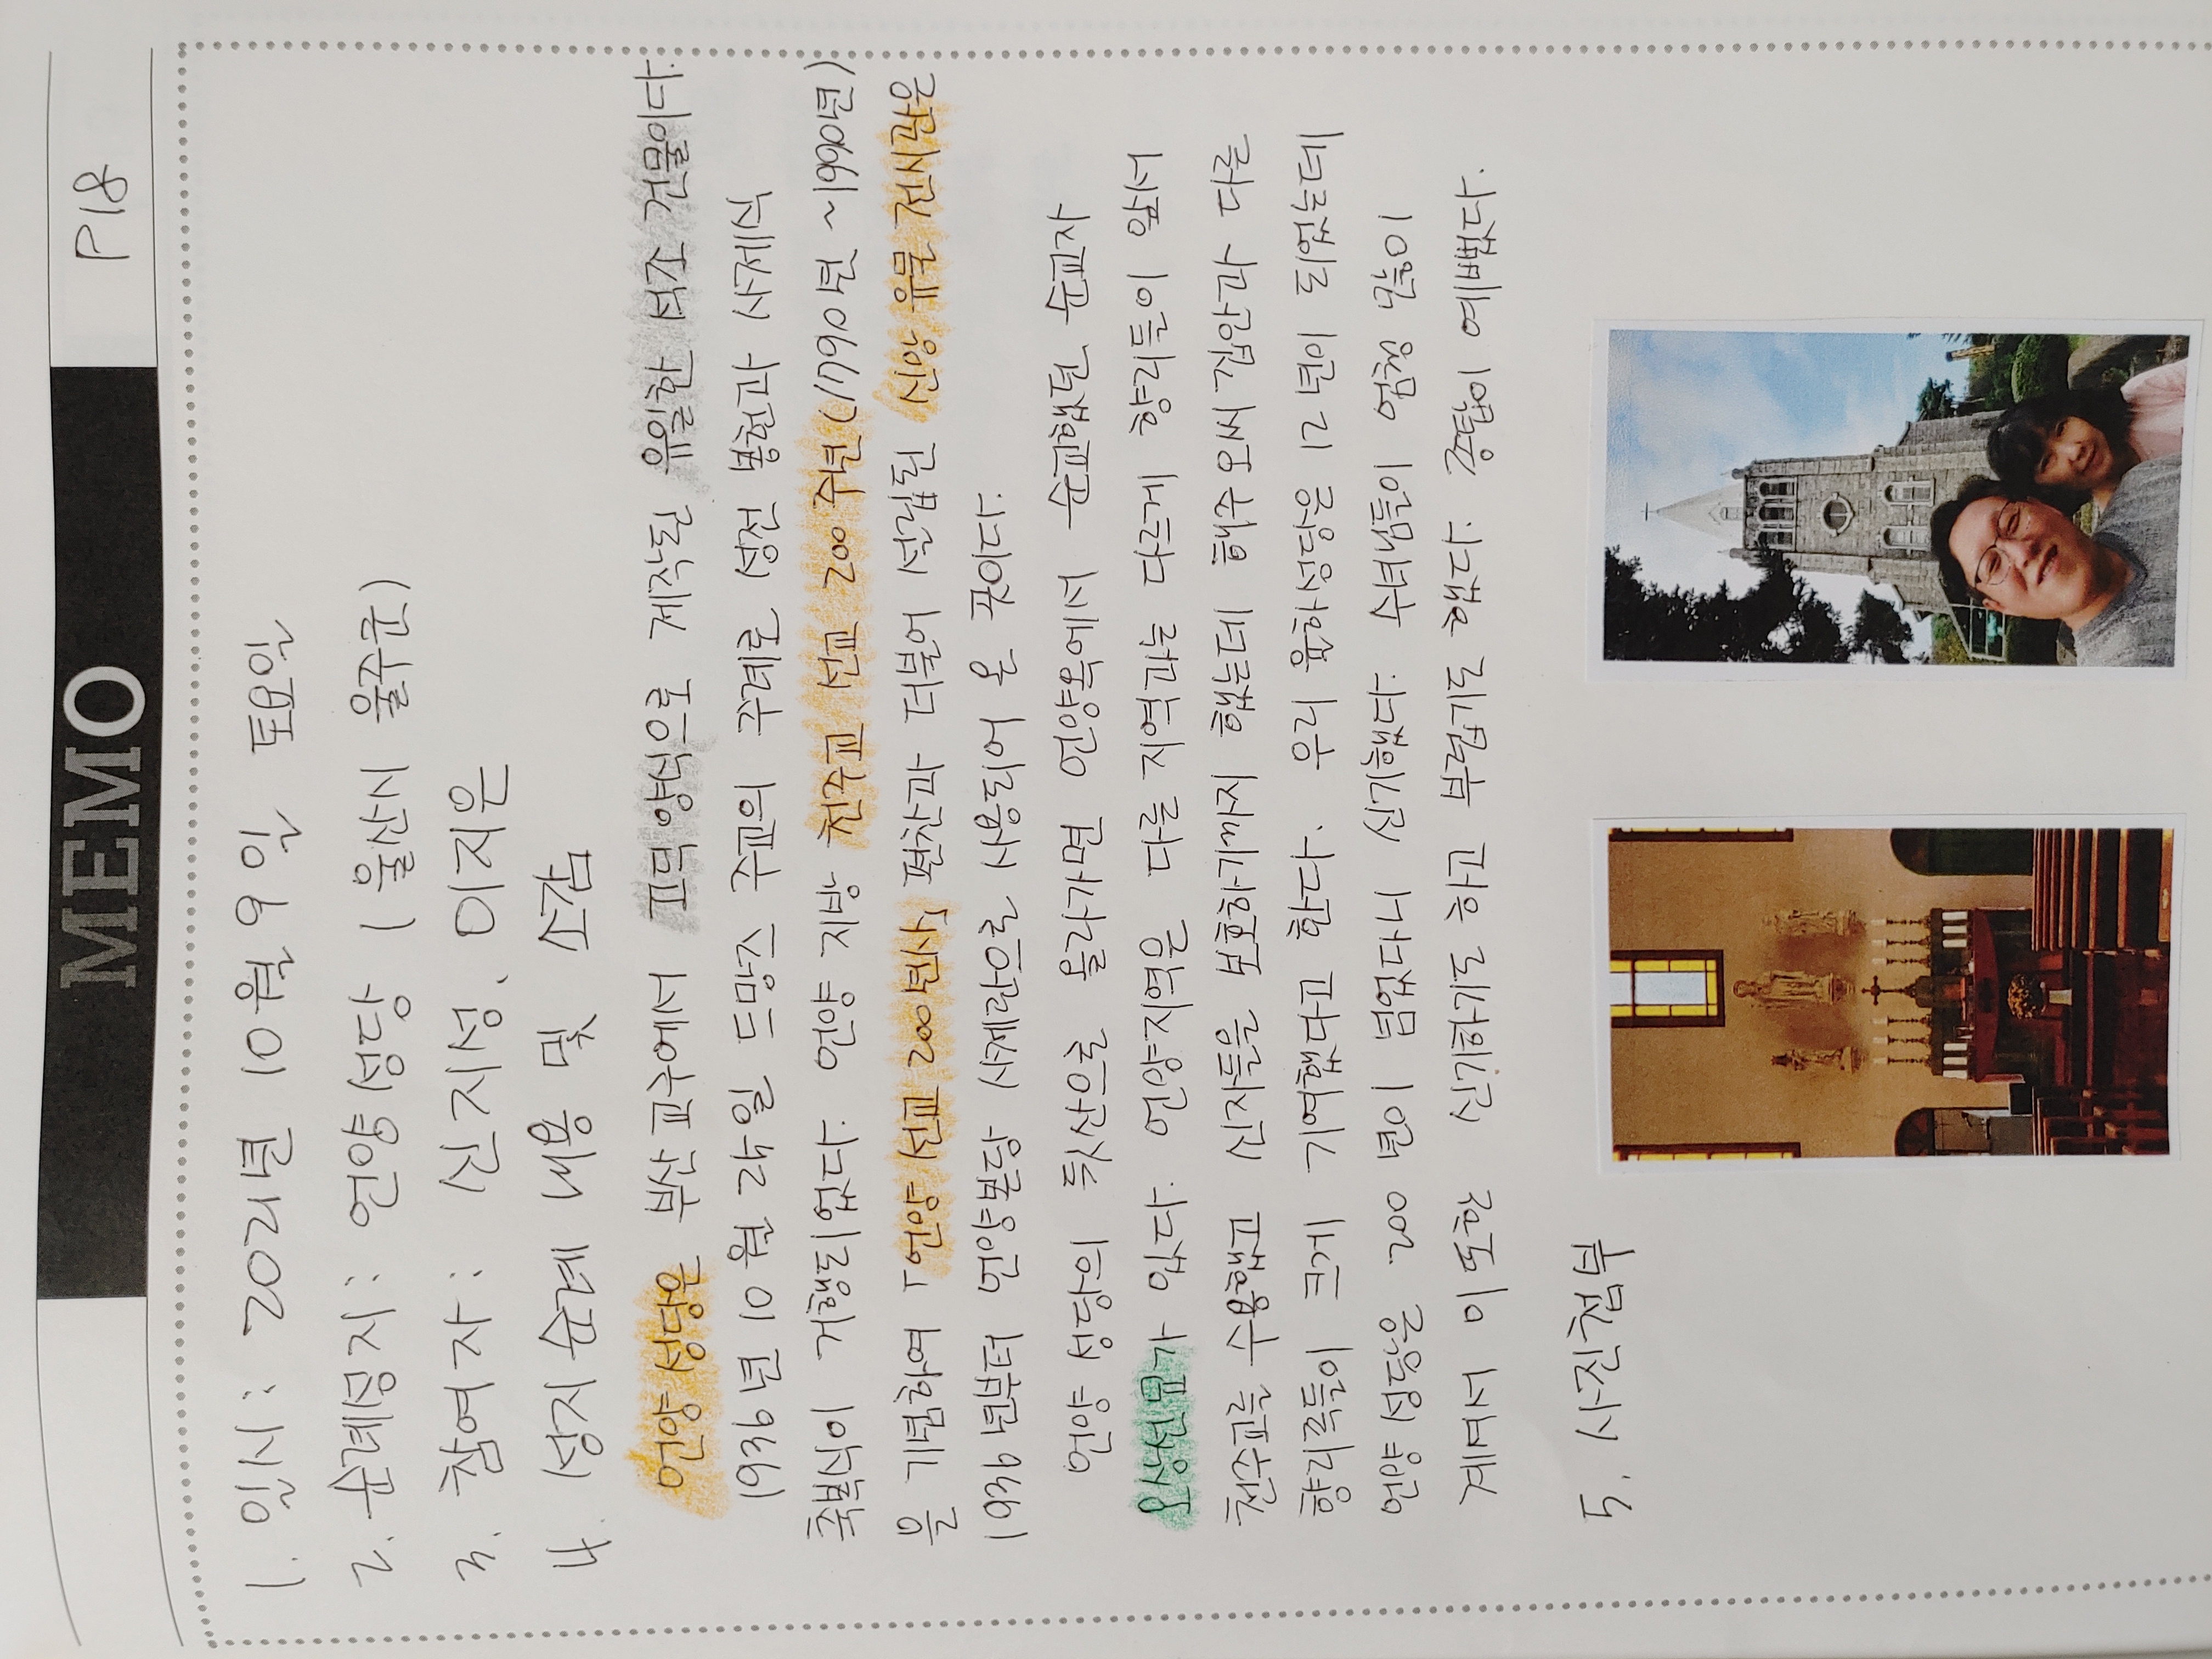 MEMO
P18
1. 일시 : 2021년 10월 9일 토요일
2. 순례성지 : 언양성당 (울산시 울주군)
3. 참여자 : 신지성, 이지은
4. 성지순례 내용 및 소감
언양 성당은 부산교구에서 고딕양식으로 제작된 유일한 석조 건물이다.
1936년 10월 25일 드망즈 주교의 주례로 성전 봉헌과 사제식
축복식이 거행되었다. 언양 지방 천주교 선교 200주년(1790년 ~1990년)
을 기념하여 「언양 선교 200년사」 편찬과 더불어 설립된 신앙 유물 전시관은
1936년부터 언양본당 사제관으로 사용되어 온 곳이다.
언양 성당의 뒷산으로 올라가면 언양옥에서 순교했던 순교자
오상선묘가 있다. 언양지역은 다른 지역과는 다르게 향리들이 앞서
천주교를 수용했고 신자들을 보호하기까지 했는데 해주오씨 집안과 다른
향리족들이 크게 기여했다고 한다. 우리 율하성당은 12년이 되었는데
언양성당은 200년이 넘었다니 신기했다. 수녀님들이 엄청 많이
계셔서 이 또한 신기하기도 하고 부럽기도 했다. 종탑이 예뻤다.
5. 사진첩부